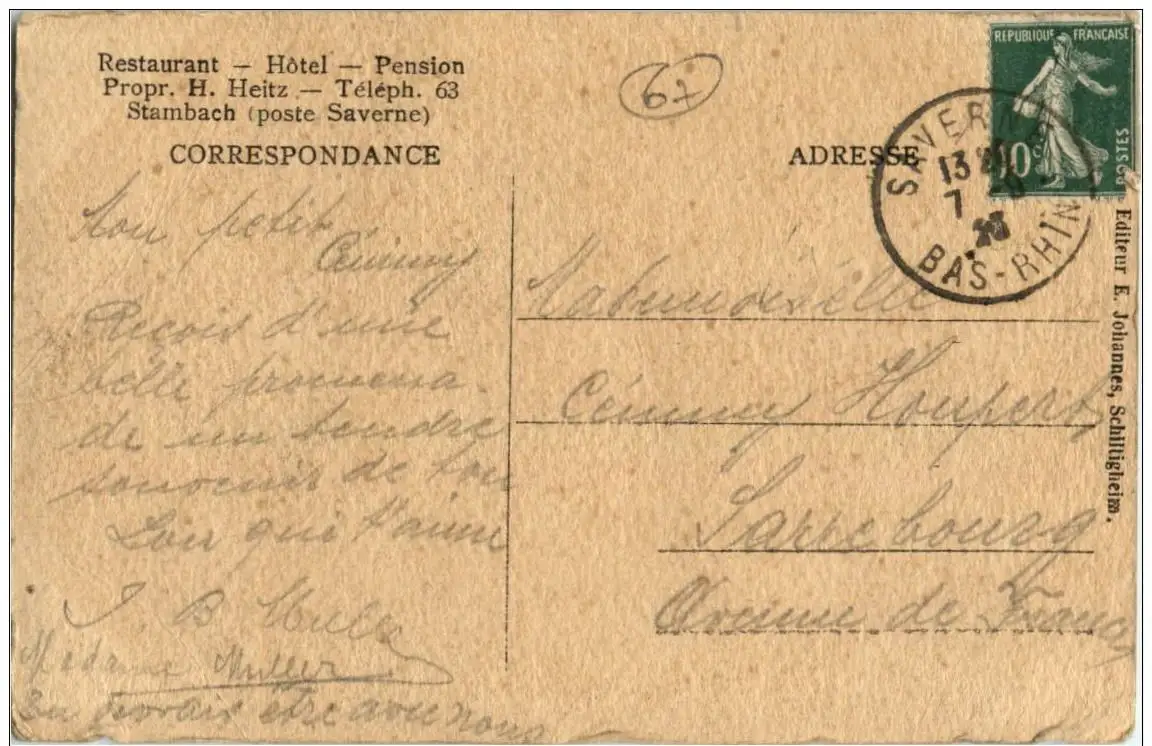 Restaurant — Hôtel — Pension
Propr. H. Heitz — Téléph. 63
Stambach (poste Saverne)
CORRESPONDANCE
67
ADRESSE
REPUBLIQUE FRANÇAISE
10c
POSTES
SAVERNE
13
7
BAS-RHIN
Editeur E. Johannes, Schiltigheim.
Mon petit
Cémmy
Reçois d'une
belle promena-
de un tendre
souvenir de ton
qui t'aime
J. B. Muller
Madame Muller
Tu devrais être avec nous
Mademoiselle
Cémmy Houpert
Sarrebourg
Avenue de France